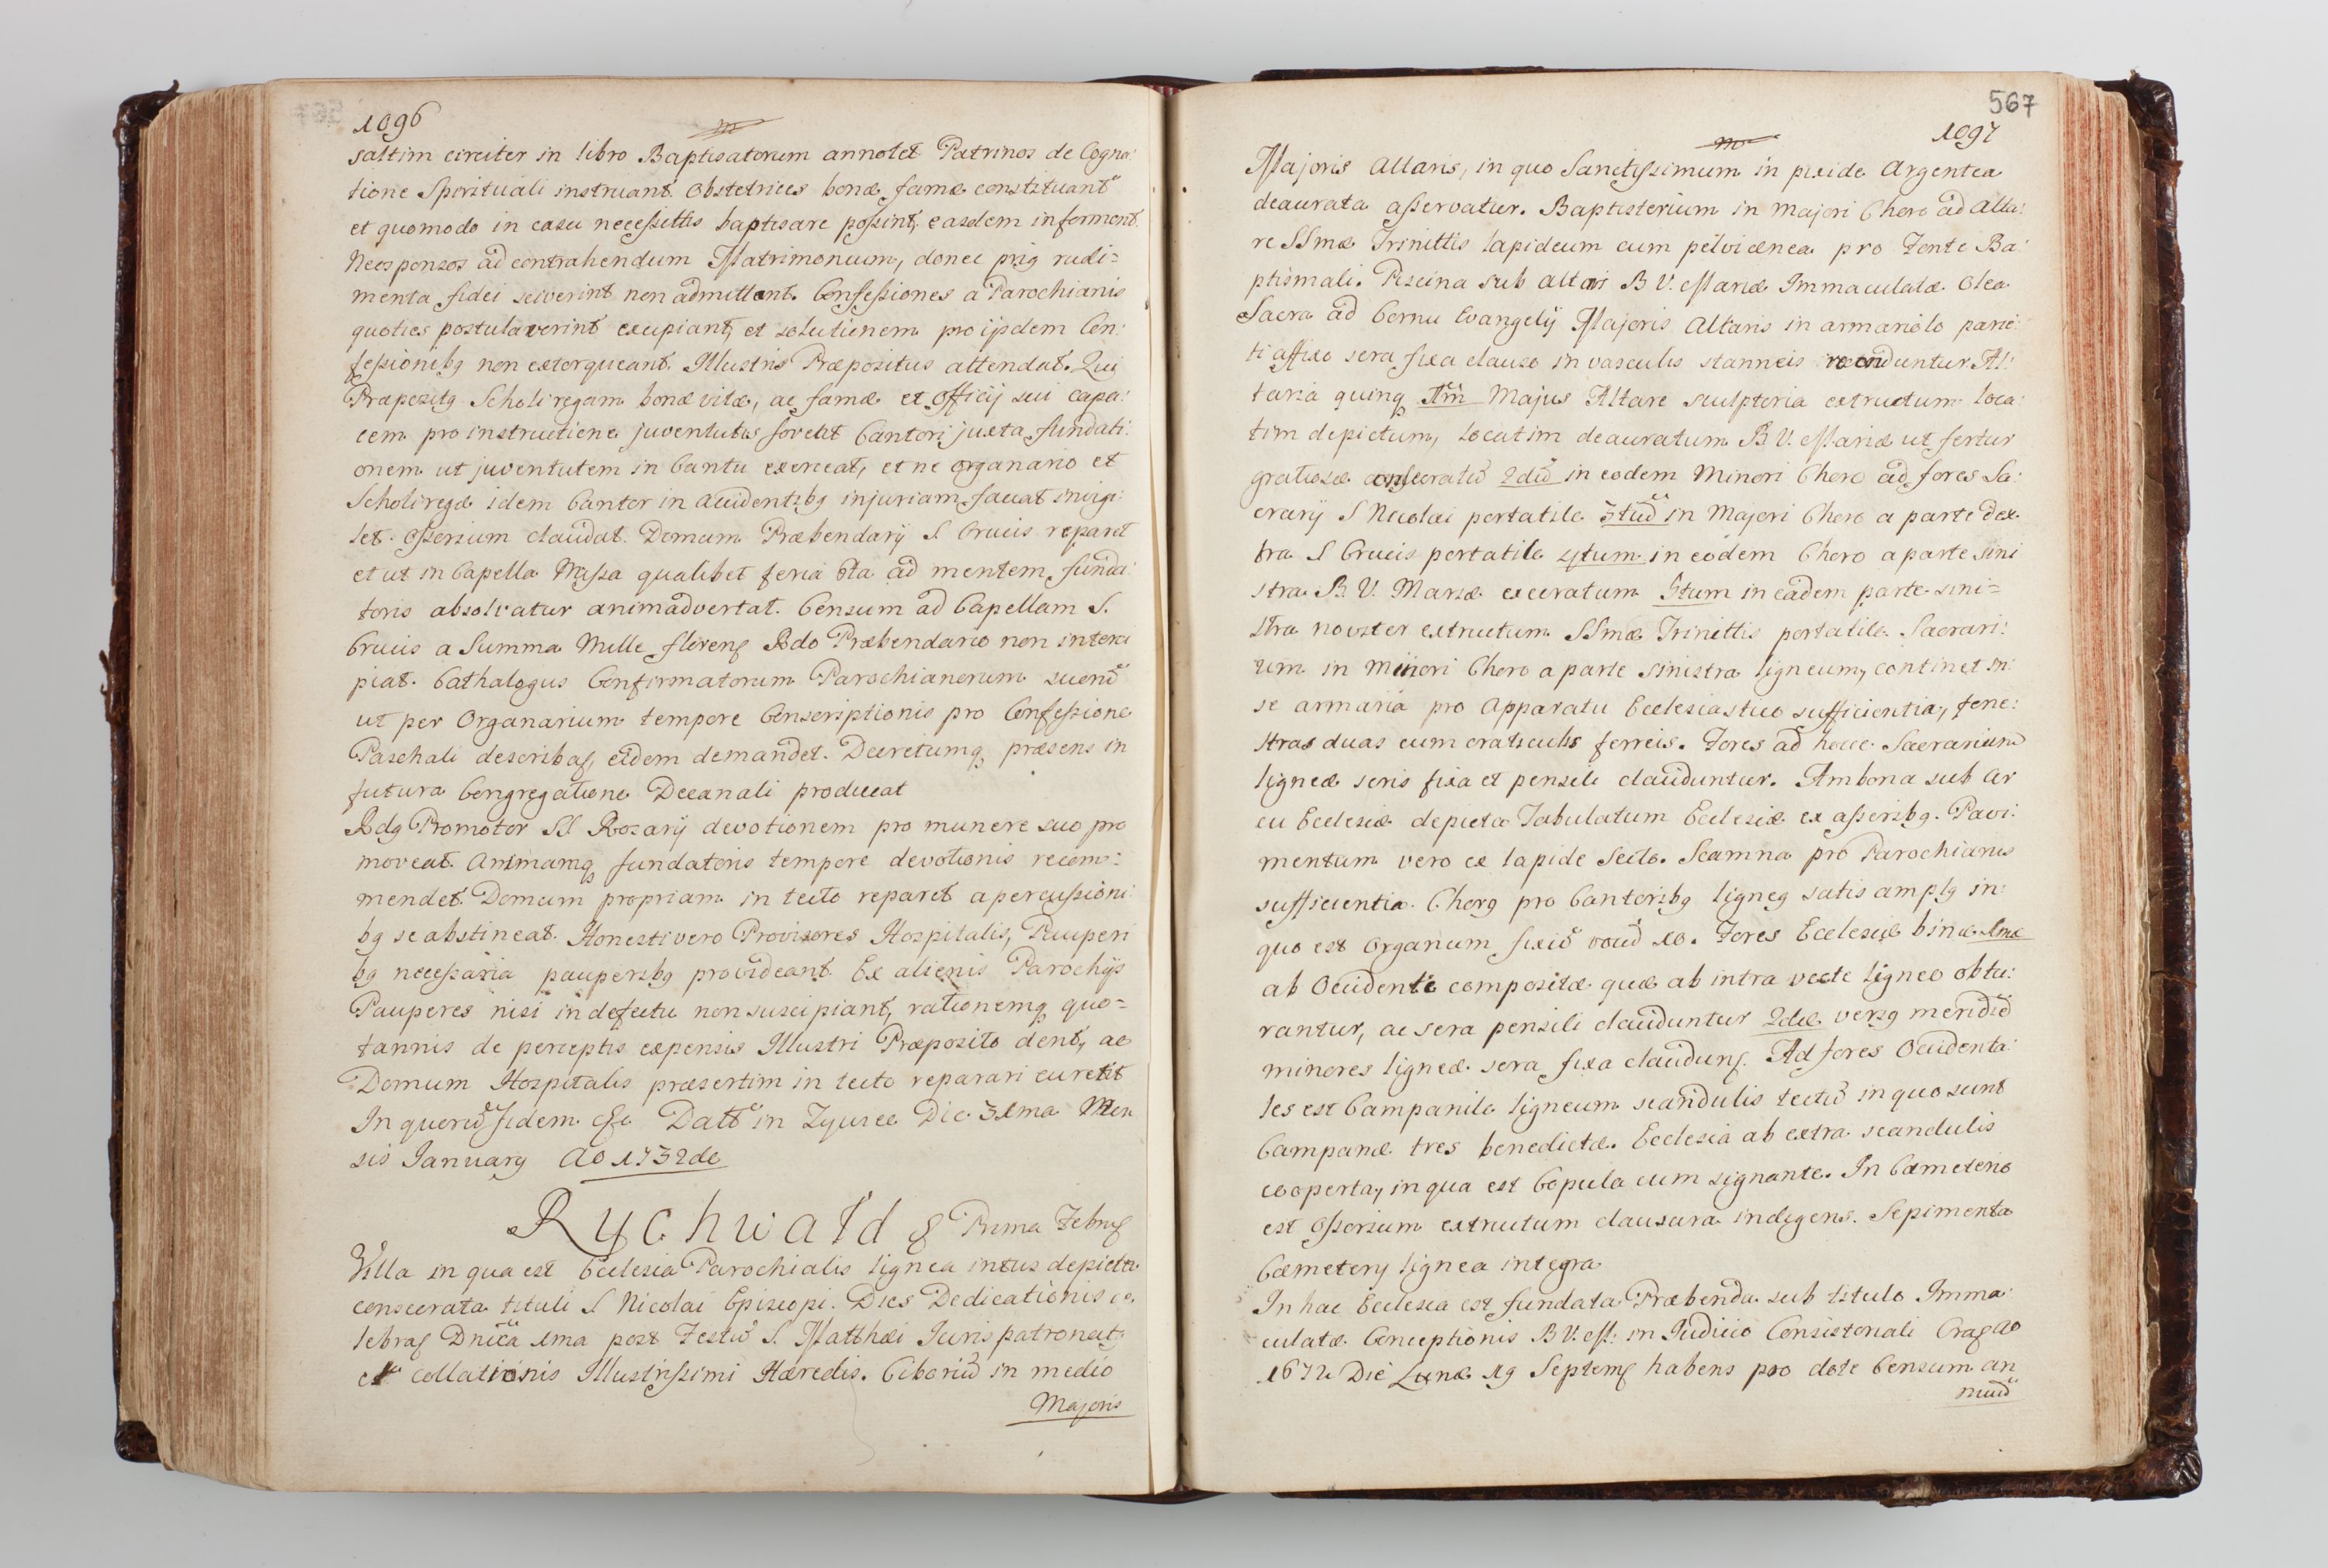 1096
m
saltim circiter in libro Baptisatorum annotet Patrinos de Cogna:
tione Spirituali instruant. Obstetrices bonæ famæ constituant
et quomodo in casu necessittis baptisare possint, easdem informent.
Nec sponsos ad contrahendum Matrimonium, donec prig rudi=
menta fidei sciverint non admittant. Confessiones a Parochianis
quoties postulaverint excipiant, et solutionem pro ijsdem Con:
fessionibg non extorqueant. Illustris Præpositus attendat. Qui
Præpositg Scholiregam bonæ vitæ, ac famæ et Officij sui capa:
cem pro instructione juventutis foveat Cantori juxta fundati:
onem ut juventutem in Cantu exerceat, et ne Organario et
Scholiregæ idem Cantor in accidentibg injuriam faciat invigi:
let. Osserium claudat. Domum Præbendarij S. Crucis reparet
et ut in Capella Missa qualibet feria 6ta ad mentem funda:
toris absolvatur animadvertat. Censum ad Capellam S.
Crucis a Summa Mille floren Rdo Præbendario non interci
piat. Cathalogus Confirmatorum Parochianorum suorũ
ut per Organarium tempore Conscriptionis pro Confessione
Paschali describat, eidem demandet. Decretumq præsens in
futura Congregatione Decanali producat
Rdg Promotor SS Rosarij devotionem pro munere suo pro
moveat. Animamq fundatoris tempore devotionis recom:
mendet. Domum propriam in tecto reparet a percussioni:
bg se abstineat. Honesti vero Provisores Hospitalis, Pauperi
bg necessaria pauperibg provideant. Ex alienis Parochijs
Pauperes nisi in defectu non suscipiant, rationemq quo=
tannis de perceptis expensis Illustri Præposito dent, ac
Domum Hospitalis præsertim in tecto reparari curent
In quorũ fidem &c Datt in Zywiec Die 31ma Men
sis January Ao 1732do
Rychwald & Prima Febru
Villa in qua est Ecclesia Parochialis lignea intus depicta
consecrata tituli S Nicolai Episcopi. Dies Dedicationis ce
lebrat Dnica 1ma post Festũ S. Matthæi Juris patronatg
et collationis Illustrissimi Hæredis. Ciboriũ in medio
Majoris
567
1097
m
Majoris Altaris, in quo Sanctissimum in pixide Argentea
deaurata asservatur. Baptisterium in Majori Choro ad Alta:
re SSmæ Trinittis lapideum cum pelvi ænea pro Fonte Ba:
ptismali. Piscina sub altari B V. Mariæ Immaculatæ. Olea
Sacra ad Cornu Evangelij Majoris Altaris in armariolo parie:
ti affixo sera fixa clauso in vasculis stanneis reconduntur. Al:
taria quinq 1m Majus Altare sculptoria extructum loca:
tim depictum, locatim deauratum B V. Mariæ ut fertur
gratiosæ consecratũ 2dũ in eodem Minori Choro ad fores Sa:
crarij S Nicolai portatile 3tiũ in Majori Choro a parte dex
tra S Crucis portatile 4tum in eodem Choro a parte sini
stra B V. Mariæ execratum 5tum in eadem parte sini=
stra noviter extructum SSmæ Trinittis portatile. Sacrari:
um in Minori Choro a parte sinistra ligneum, continet in:
se armaria pro Apparatu Ecclesiastico sufficientia, fene:
stras duas cum craticulis ferreis. Fores ad hocce Sacrarium
ligneæ seris fixa et pensili clauduntur. Ambona sub ar
cu Ecclesiæ depicta Tabulatum Ecclesiæ ex asseribg. Pavi:
mentum vero ex lapide Secto. Scamna pro Parochianis
sufficientia. Chorg pro Cantoribg ligneg satis amplg in:
quo est Organum fixũ vocũ 10. Fores Ecclesiæ binæ 1mæ
ab Occidente compositæ quæ ab intra vecte ligneo obtu:
rantur, ac sera pensili clauduntur 2dæ versg meridiẽ
minores ligneæ sera fixa claudun. Ad fores Occidenta:
les est Campanile ligneum scandulis tectũ in quo sunt
Campanæ tres benedictæ. Ecclesia ab extra scandulis
cooperta, in qua est Copula cum signante. In Cæmeterio
est Osserium extructum clausura indigens. Sepimenta
Cæmeterij lignea integra
In hac Ecclesia est fundata Præbenda sub titulo Imma:
culatæ Conceptionis B V. M: in Judicio Consistoriali Crac Ao
1672 Die Lunæ 19 Septem habens pro dote Censum an
nuũ